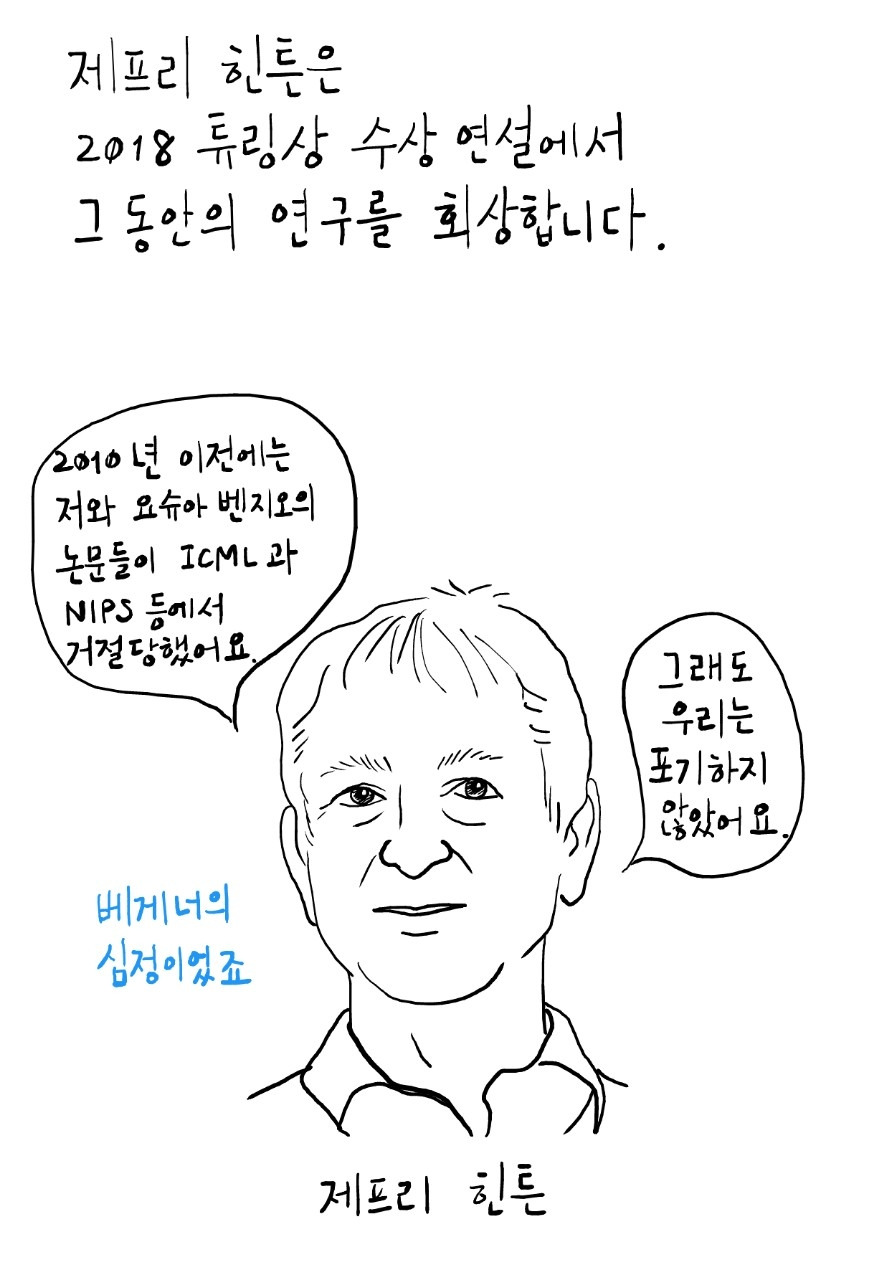 제프리 힌튼은
2018 튜링상 수상 연설에서
그 동안의 연구를 회상합니다.
2010년 이전에는
저와 요슈아 벤지오의
논문들이 ICML과
NIPS 등에서
거절당했어요.
그래도
우리는
포기하지
않았어요.
베게너의
심정이었죠
제프리 힌튼